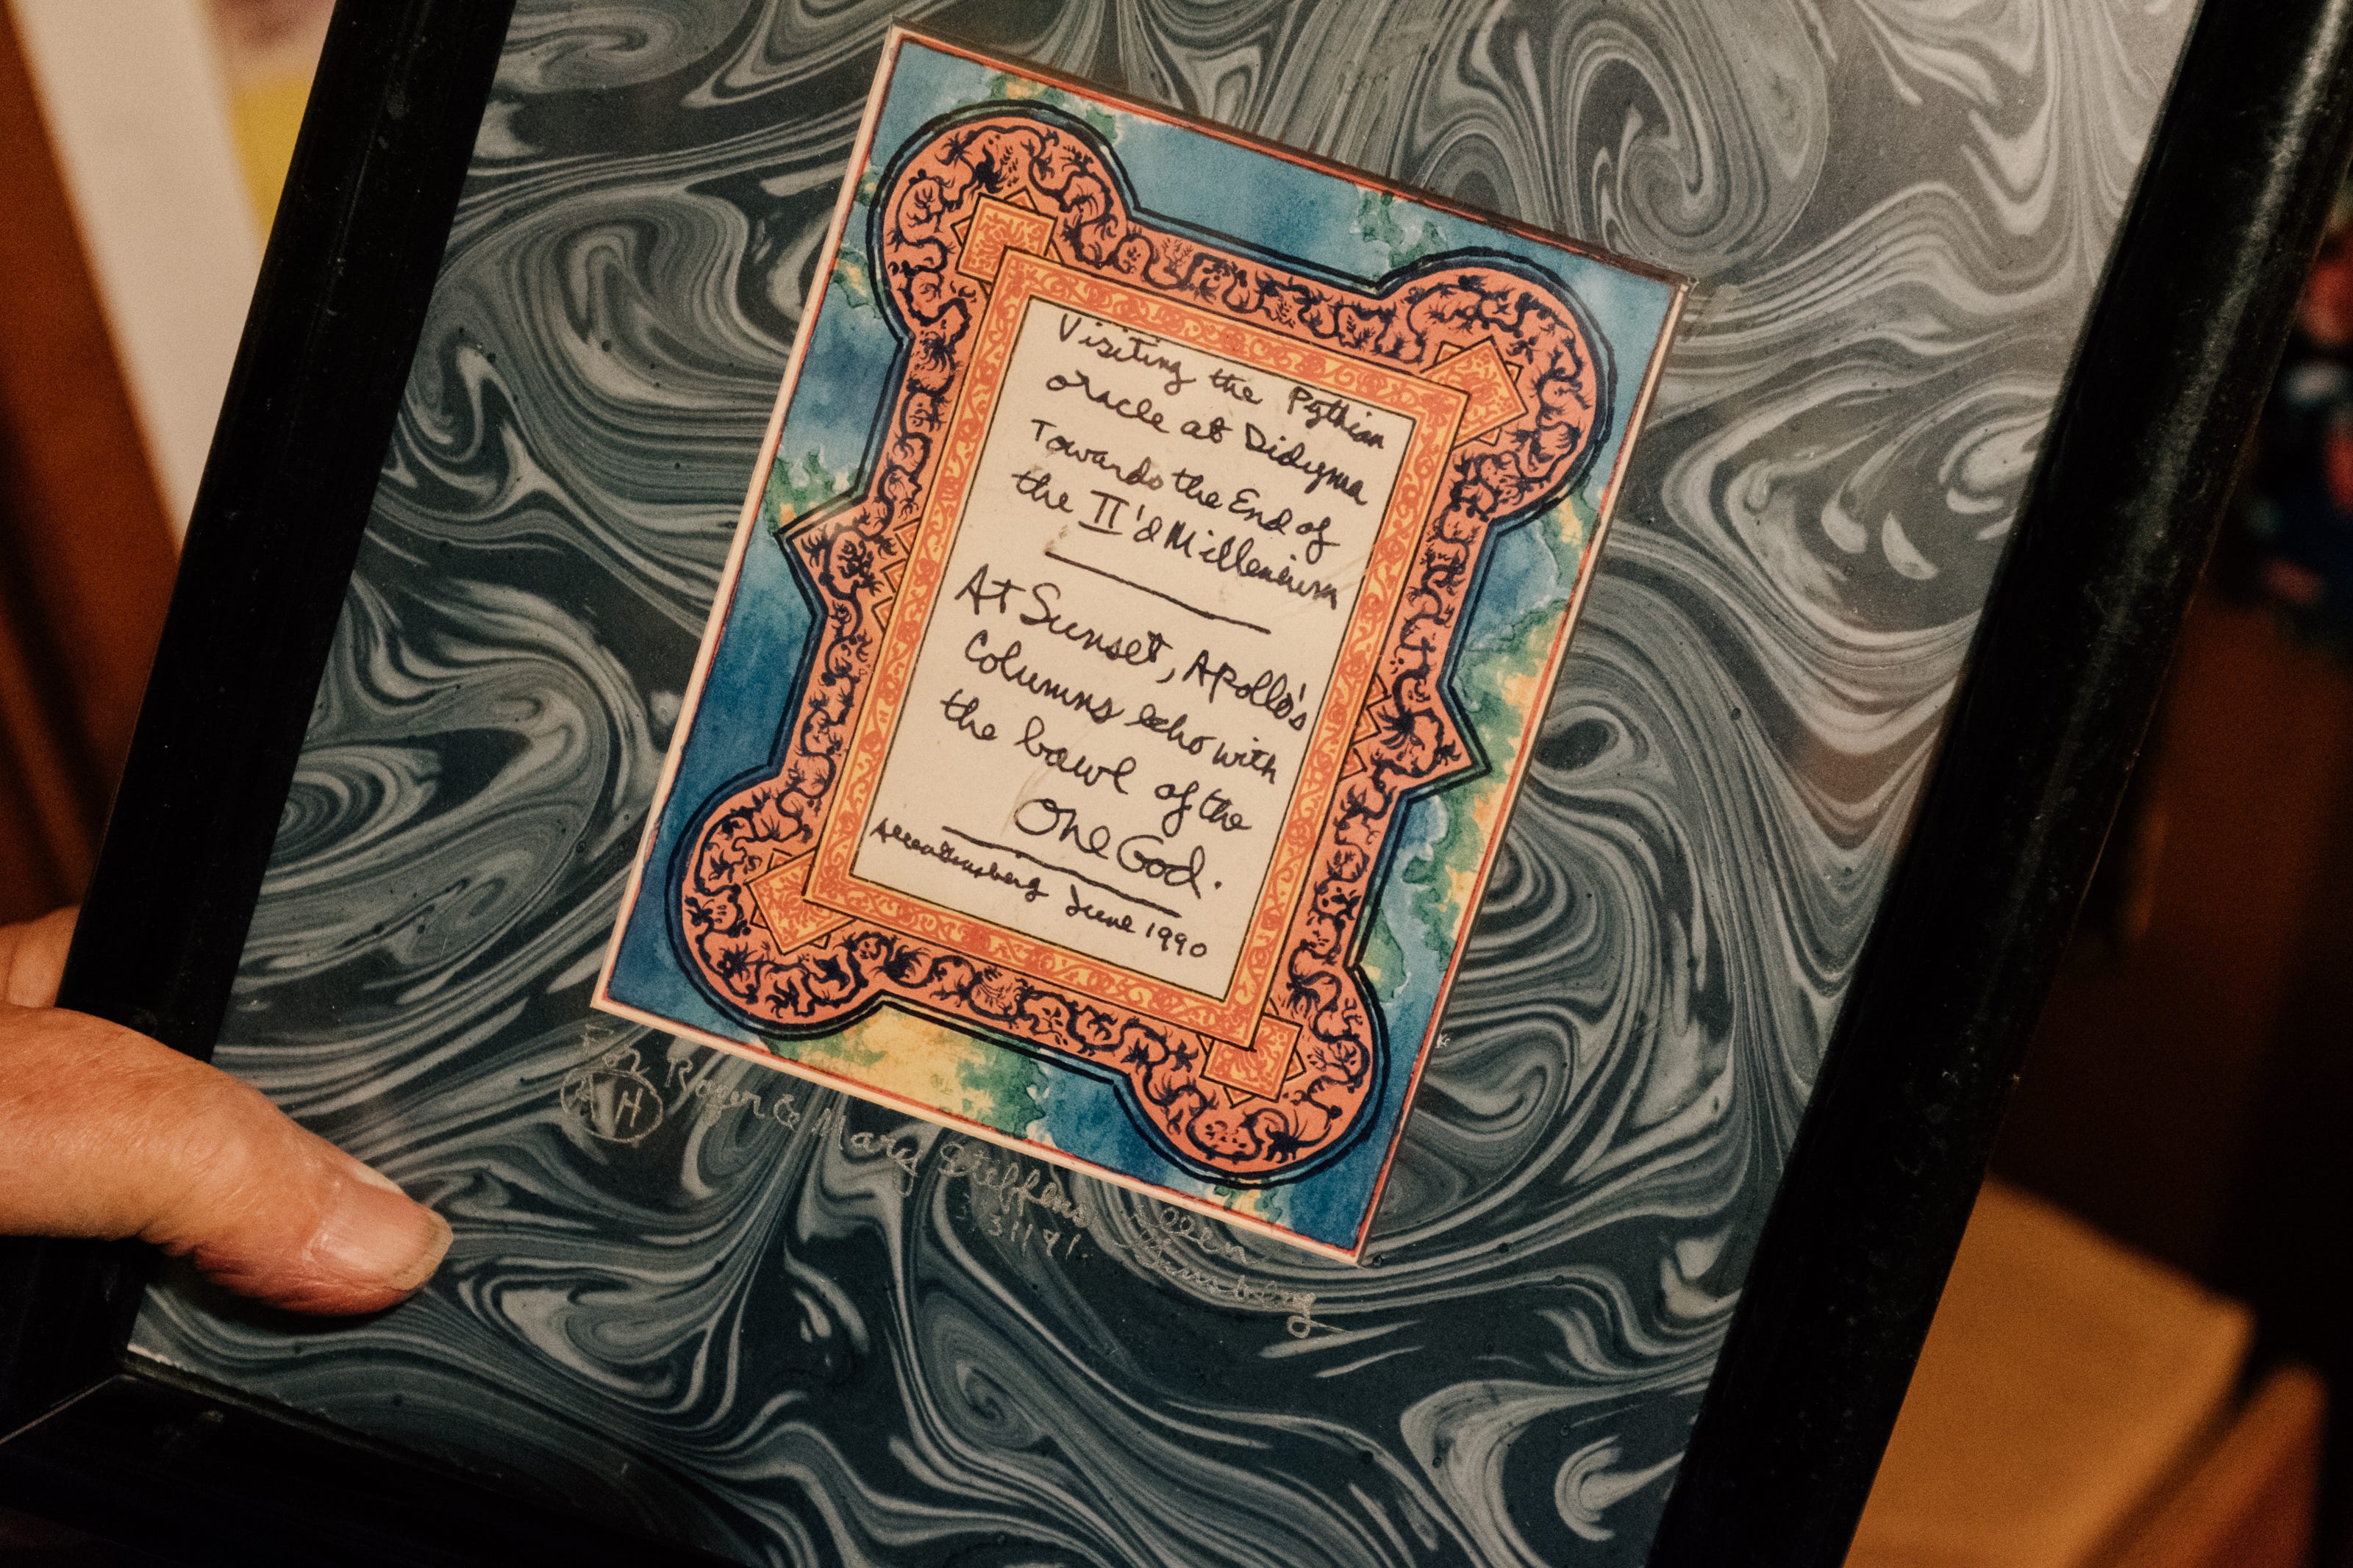 Visiting the Pythian
oracle at Didyma
Towards the End of
the II'd Millenium
At Sunset, Apollo's
Columns echo with
the bawl of the
One God.
Allen Ginsberg June 1990
For Roger & Mary Steffens
AH
3/31/91
Allen
Ginsberg